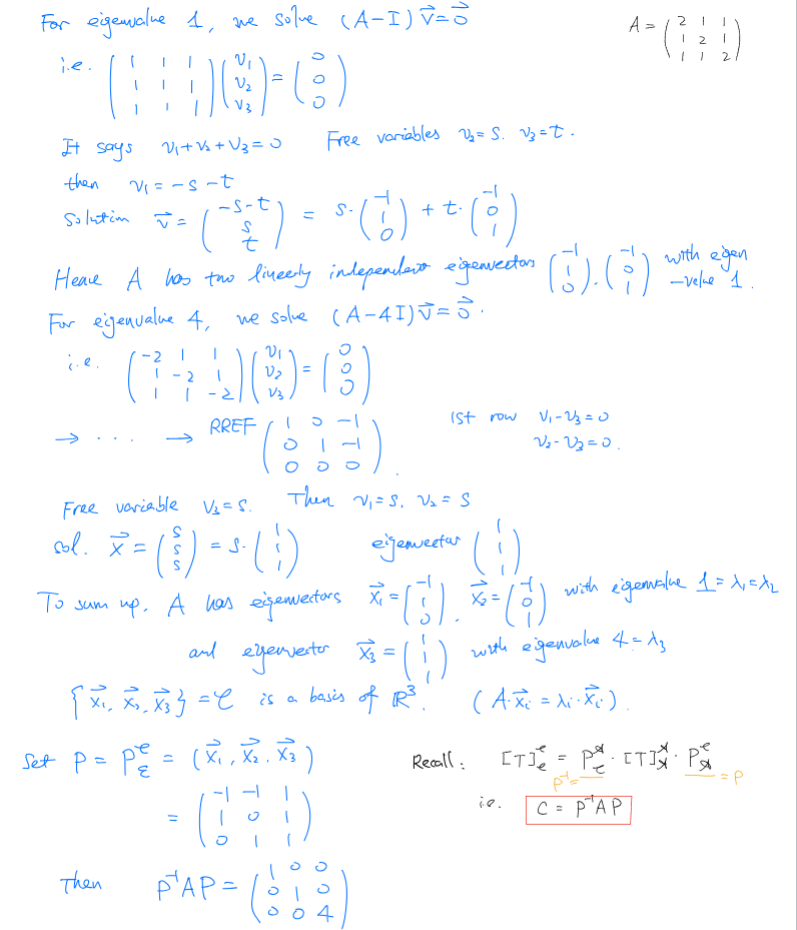 For eigenvalue 1, we solve (A-I)v⃗=0⃗
A = ( 2 1 1 / 1 2 1 / 1 1 2 )
i.e. ( 1 1 1 / 1 1 1 / 1 1 1 ) ( v₁ / v₂ / v₃ ) = ( 0 / 0 / 0 )
It says v₁+v₂+v₃=0 Free variables v₂=s. v₃=t.
then v₁ = -s-t
Solution v⃗ = ( -s-t / s / t ) = s·( -1 / 1 / 0 ) + t·( -1 / 0 / 1 )
Hence A has two linearly independent eigenvectors ( -1 / 1 / 0 ), ( -1 / 0 / 1 ) with eigen
-value 1.
For eigenvalue 4, we solve (A-4I)v⃗=0⃗.
i.e. ( -2 1 1 / 1 -2 1 / 1 1 -2 ) ( v₁ / v₂ / v₃ ) = ( 0 / 0 / 0 )
→ ···· → RREF ( 1 0 -1 / 0 1 -1 / 0 0 0 ). 1st row v₁-v₃=0
v₂-v₃=0.
Free variable v₃=s. Then v₁=s, v₂=s
sol. x⃗ = ( s / s / s ) = s·( 1 / 1 / 1 ) eigenvector ( 1 / 1 / 1 )
To sum up, A has eigenvectors x⃗₁=( -1 / 1 / 0 ), x⃗₂=( -1 / 0 / 1 ) with eigenvalue 1=λ₁=λ₂
and eigenvector x⃗₃=( 1 / 1 / 1 ) with eigenvalue 4=λ₃
{x⃗₁, x⃗₂, x⃗₃} = C is a basis of ℝ³. (A·x⃗ᵢ = λᵢ·x⃗ᵢ).
Set P = = (x⃗₁, x⃗₂, x⃗₃)
Recall:
P⁻¹= =P
= ( -1 -1 1 / 1 0 1 / 0 1 1 )
ie. C = P⁻¹AP
Then P⁻¹AP = ( 1 0 0 / 0 1 0 / 0 0 4 )